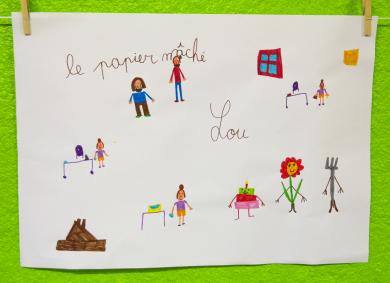 le papier mâché
Lou